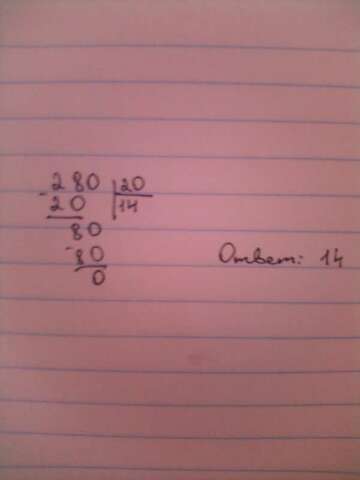 - 280 | 20
20 | 14
80
- 80
0
Ответ: 14